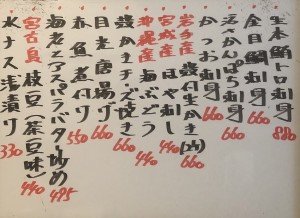 生本鮪トロ刺身 880
金目鯛刺身 660
活さかばら刺身 660
かつお刺身 660
岩手産 殻付生かき(2ヶ) 660
宮城産 ほや刺し 440
沖縄産 海ぶどう 440
殻かきチーズ焼き 660
目光唐揚げ 660
赤魚煮付 550
海老とアスパラバター炒め 495
宮古島 枝豆(茶豆味) 440
水ナス浅漬け 330